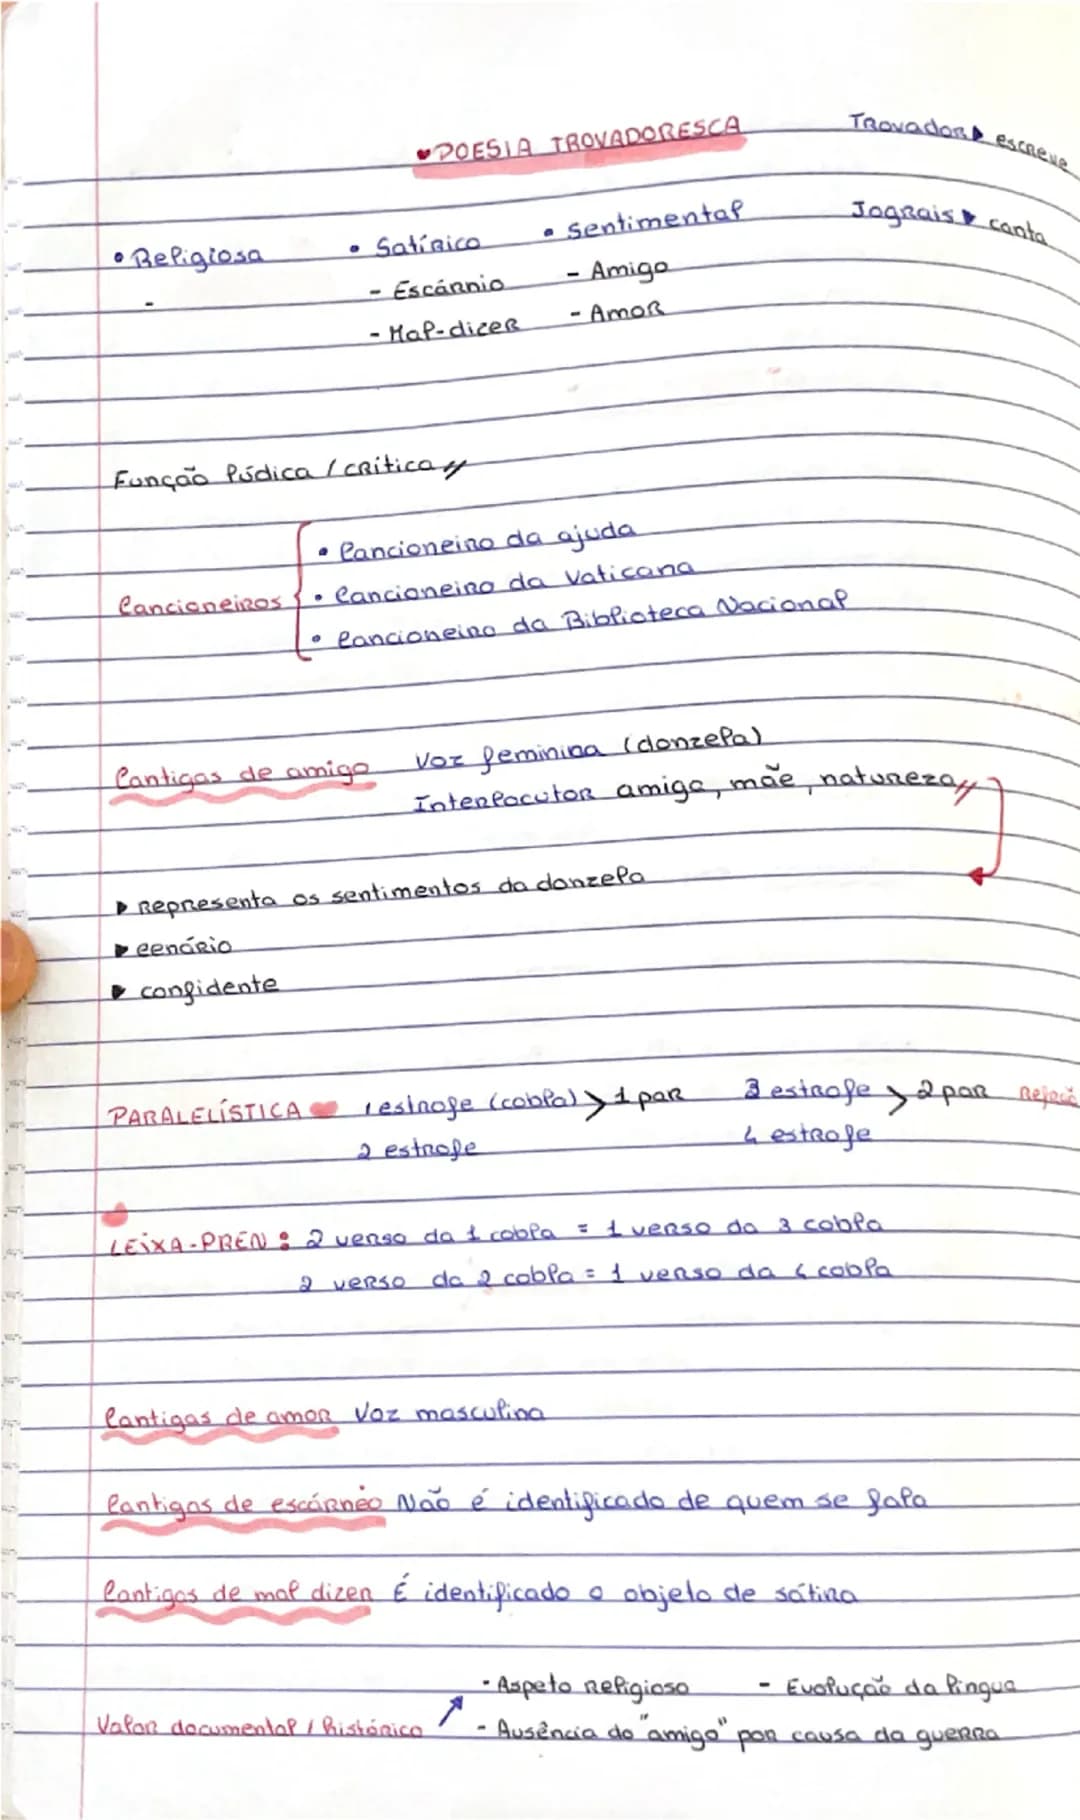 POESIA TROVADORESCA
Trovador escreve
Jograis canta
• Religiosa • Satírico • Sentimental
-
- Escárnio - Amigo
- Mal-dizer - Amor
Função lúdica / crítica
Cancioneiros
• Cancioneiro da ajuda
• Cancioneiro da Vaticana
• Cancioneiro da Biblioteca Nacional
Cantigas de amigo Voz feminina (donzela)
Interlocutor amiga, mãe, natureza
representa os sentimentos da donzela
cenário
confidente
PARALELÍSTICA 1 estrofe (cobla) > 1 par 3 estrofe > 2 par
2 estrofe 4 estrofe
LEIXA-PREN: 2 verso da 1 cobla = 1 verso da 3 cobla
2 verso da 2 cobla = 1 verso da 4 cobla
Cantigas de amor Voz masculina
Cantigas de escárneo Não é identificado de quem se fala
Cantigas de mal dizer É identificado o objeto de sátira
- Aspeto religioso - Evolução da língua
Valor documental / histórico - Ausência do "amigo" por causa da guerra